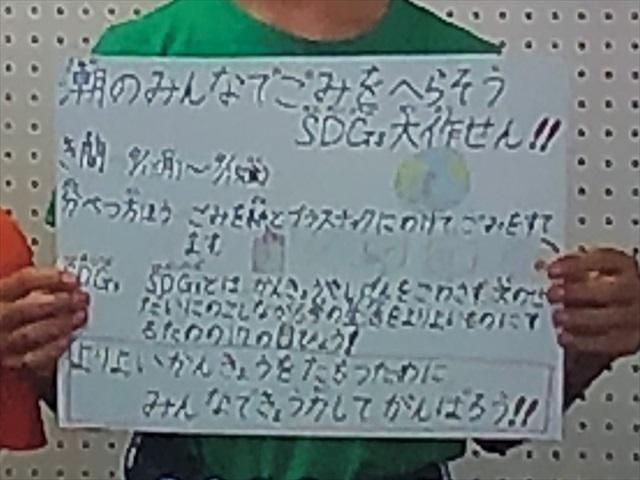 潮のみんなでごみをへらそう
SDGs大作せん!!
き間
分べつ方ほう ごみを紙とプラスチックにわけて、ごみをすて
ます
SDGs SDGsとは、かんきょうやしげんをこわさず、次のせ
だいにのこしながら今の生活をよりよいものにす
るための17の目ひょう!
よりよいかんきょうをたもつために
みんなできょう力してがんばろう!!